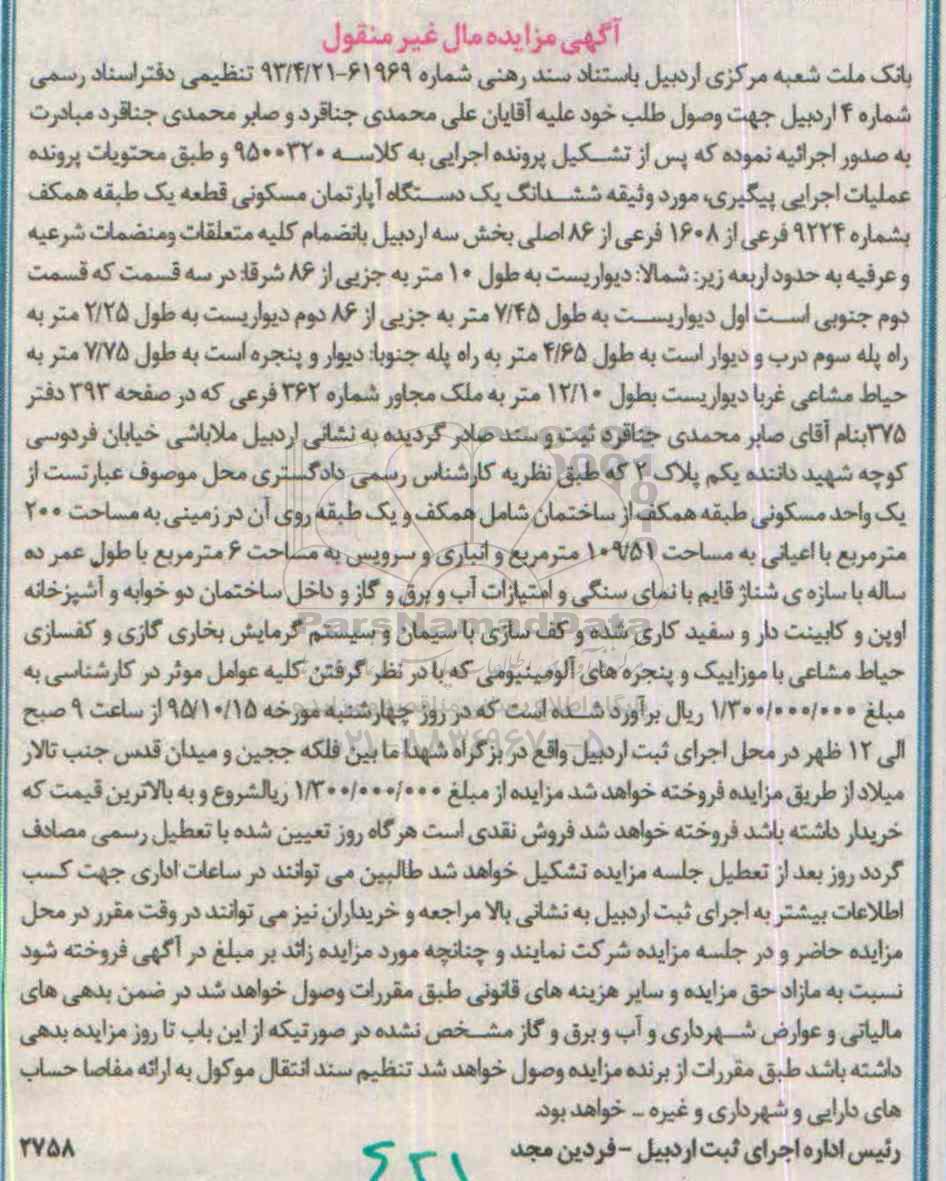 آگهی مزایده مال غیر منقول
بانک ملت شعبه مرکزی اردبیل باستناد سند رهنی شماره ۶۱۹۶۹-۹۳/۴/۲۱ تنظیمی دفتر اسناد رسمی
شماره ۴ اردبیل جهت وصول طلب خود علیه آقایان علی محمدی جناقرد و صابر محمدی جناقرد مبادرت
به صدور اجرائیه نموده که پس از تشکیل پرونده اجرایی به کلاسه ۹۵۰۰۳۲۰ و طبق محتویات پرونده
عملیات اجرایی پیگیری، مورد وثیقه ششدانگ یک دستگاه آپارتمان مسکونی قطعه یک طبقه همکف
بشماره ۹۲۲۴ فرعی از ۱۶۰۸ فرعی از ۸۶ اصلی بخش سه اردبیل بانضمام کلیه متعلقات ومنضمات شرعیه
و عرفیه به حدود اربعه زیر: شمالا: دیواریست به طول ۱۰ متر به جزیی از ۸۶ شرقا: در سه قسمت که قسمت
دوم جنوبی است اول دیواریست به طول ۷/۴۵ متر به جزیی از ۸۶ دوم دیواریست به طول ۲/۲۵ متر به
راه پله سوم درب و دیوار است به طول ۴/۶۵ متر به راه پله جنوبا: دیوار و پنجره است به طول ۷/۷۵ متر به
حیاط مشاعی غربا دیواریست بطول ۱۲/۱۰ متر به ملک مجاور شماره ۳۶۲ فرعی که در صفحه ۳۹۳ دفتر
۳۷۵بنام آقای صابر محمدی جناقرد ثبت و سند صادر گردیده به نشانی اردبیل ملاباشی خیابان فردوسی
کوچه شهید داننده یکم پلاک ۲ که طبق نظریه کارشناس رسمی دادگستری محل موصوف عبارتست از
یک واحد مسکونی طبقه همکف از ساختمان شامل همکف و یک طبقه روی آن در زمینی به مساحت ۲۰۰
مترمربع با اعیانی به مساحت ۱۰۹/۵۱ مترمربع و انباری و سرویس به مساحت ۶ مترمربع با طول عمر ده
ساله با سازه ی شناژ قایم با نمای سنگی و امتیازات آب و برق و گاز و داخل ساختمان دو خوابه و آشپزخانه
اوپن و کابینت دار و سفید کاری شده و کف سازی با سیمان و سیستم گرمایش بخاری گازی و کفسازی
حیاط مشاعی با موزاییک و پنجره های آلومینیومی که با در نظر گرفتن کلیه عوامل موثر در کارشناسی به
مبلغ ۱/۳۰۰/۰۰۰/۰۰۰ ریال برآورد شده است که در روز چهارشنبه مورخه ۹۵/۱۰/۱۵ از ساعت ۹ صبح
الی ۱۲ ظهر در محل اجرای ثبت اردبیل واقع در بزگراه شهدا ما بین فلکه ججین و میدان قدس جنب تالار
میلاد از طریق مزایده فروخته خواهد شد مزایده از مبلغ ۱/۳۰۰/۰۰۰/۰۰۰ ریالشروع و به بالاترین قیمت که
خریدار داشته باشد فروخته خواهد شد فروش نقدی است هر گاه روز تعیین شده با تعطیل رسمی مصادف
گردد روز بعد از تعطیل جلسه مزایده تشکیل خواهد شد طالبین می توانند در ساعات اداری جهت کسب
اطلاعات بیشتر به اجرای ثبت اردبیل به نشانی بالا مراجعه و خریداران نیز می توانند در وقت مقرر در محل
مزایده حاضر و در جلسه مزایده شرکت نمایند و چنانچه مورد مزایده زائد بر مبلغ در آگهی فروخته شود
نسبت به مازاد حق مزایده و سایر هزینه های قانونی طبق مقررات وصول خواهد شد در ضمن بدهی های
مالیاتی و عوارض شهرداری و آب و برق و گاز مشخص نشده در صورتیکه از این باب تا روز مزایده بدهی
داشته باشد طبق مقررات از برنده مزایده وصول خواهد شد تنظیم سند انتقال موکول به ارائه مفاصا حساب
های دارایی و شهرداری و غیره ... خواهد بود.
رئیس اداره اجرای ثبت اردبیل - فردین مجد ۲۷۵۸
ParsNamadData